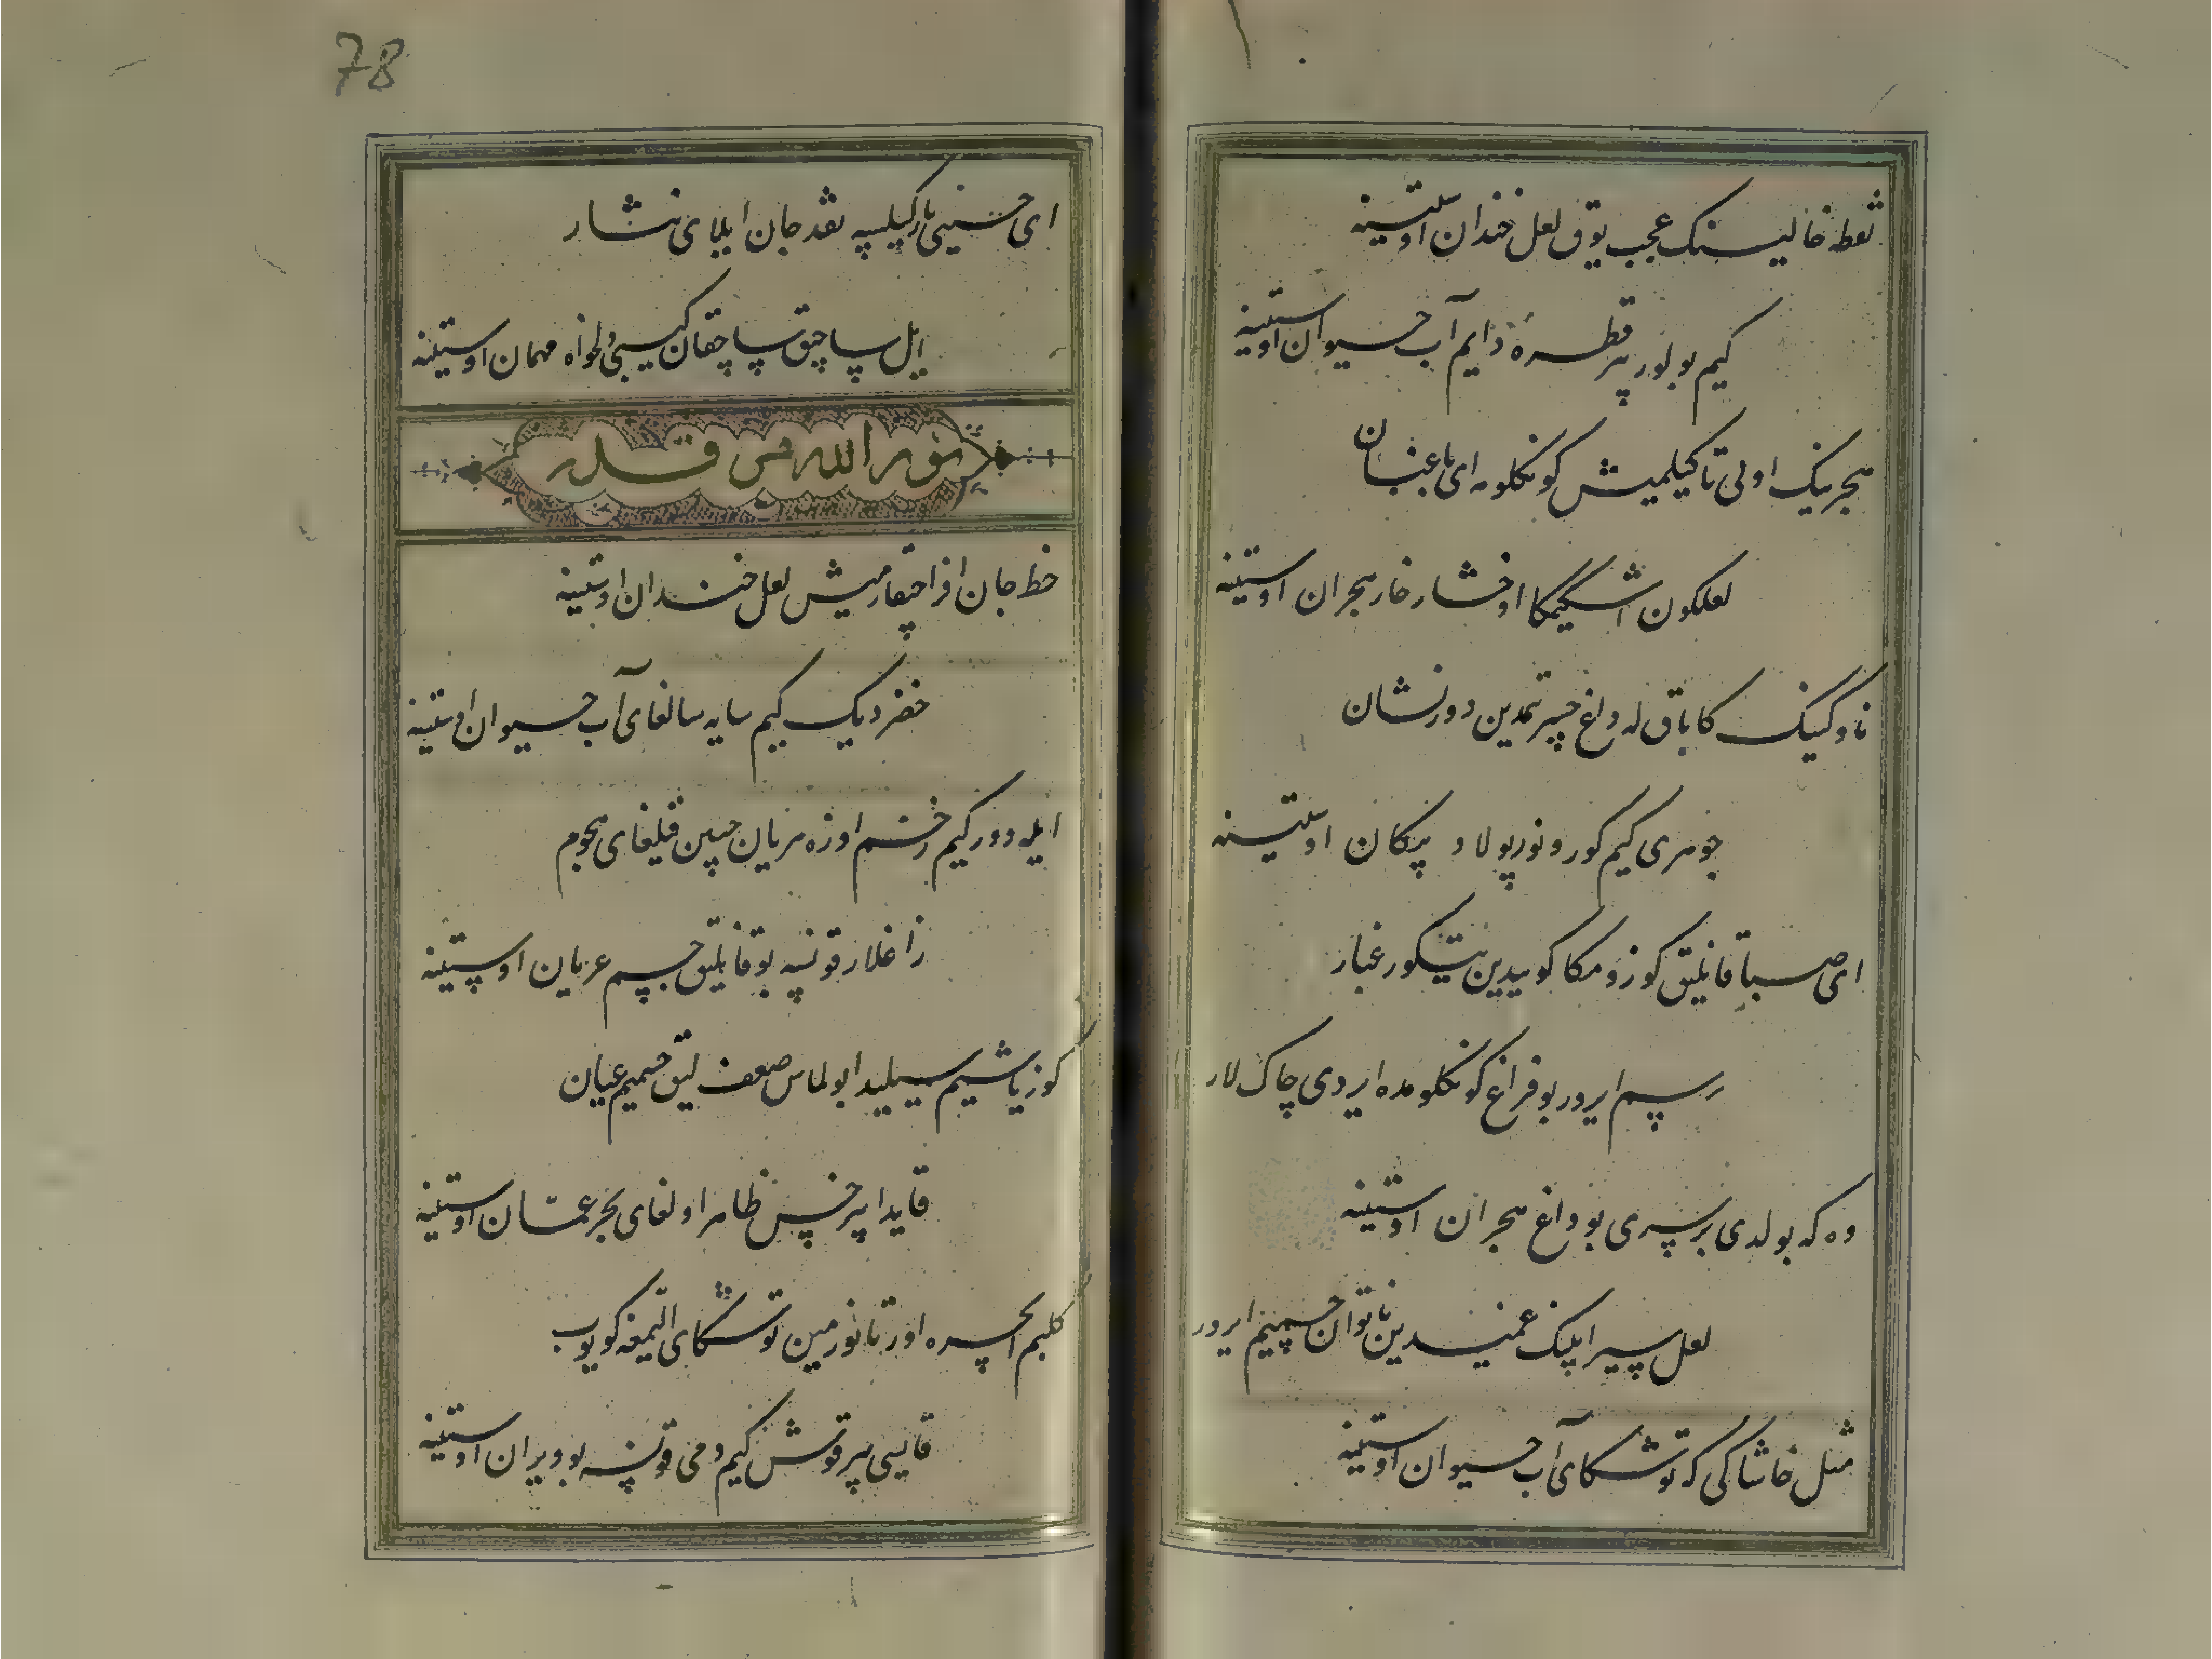 نقطه خالینک عجب یوق لعل خندان اوستینه
کیم بولور بر قطره دایم آب حیوان اوستینه
هجرینک اوتی تا کیلمیش کونکلومه ای باغبان
لعلکون اشکیمکا اوخشار خار هجران اوستینه
ناوکینک کا باق له داغ چیرتمدین دور نشان
جوهری کیم کورونور پولاد پیکان اوستینه
ای صبا قانلیق کوزومکا کوییدین یتکور غبار
رسم ایرور بو فراغ کونکلومده ایردی چاک لار
وه که بولدی بر سری بو داغ هجران اوستینه
لعل سیرابینک غمیدین ناتوان جسمیم ایرور
مثل خاشاکی که توشکای آب حیوان اوستینه
78
ای حسینی یار کیلسه نقد جان ایلای نثار
ایل ساچیق ساچقان کیبی دلخواه مهمان اوستینه
نور الله مرقده
خط جان افزا چیقارمیش لعل خندان اوستینه
خضر دیک کیم سایه سالغای آب حیوان اوستینه
ایله دور کیم زخم اوزه هر یان چبین قیلغای هجوم
زاغلار قونسه بو قانلیق جسم عریان اوستینه
کوز یاشیم سیلیدا بولماس ضعف لیق جسمیم عیان
قایدا بیر خس ظاهر اولغای بحر عمان اوستینه
کلبم ایچره اورتانورمین توشکای التیمغه کویوب
قایسی بیر قوش کیم دمی قونسه بو ویران اوستینه